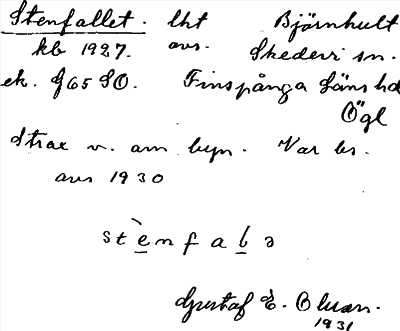 Stenfallet. lht Björnhult
kb 1927. avs. Skedevi sn.
ek. g65 SO. Finspånga läns hd
Ögl
Strax v. om byn. Var bs.
avs 1930
stènfaba
Gustaf E.
1931